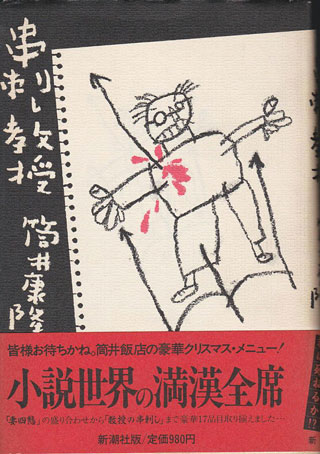 串刺し教授
筒井康隆
皆様お待ちかね。筒井飯店の豪華クリスマス・メニュー!
小説世界の満漢全席
「妻四態」の盛り合わせから「教授の串刺し」まで豪華17品目取り揃えました──
新潮社版/定価980円
新